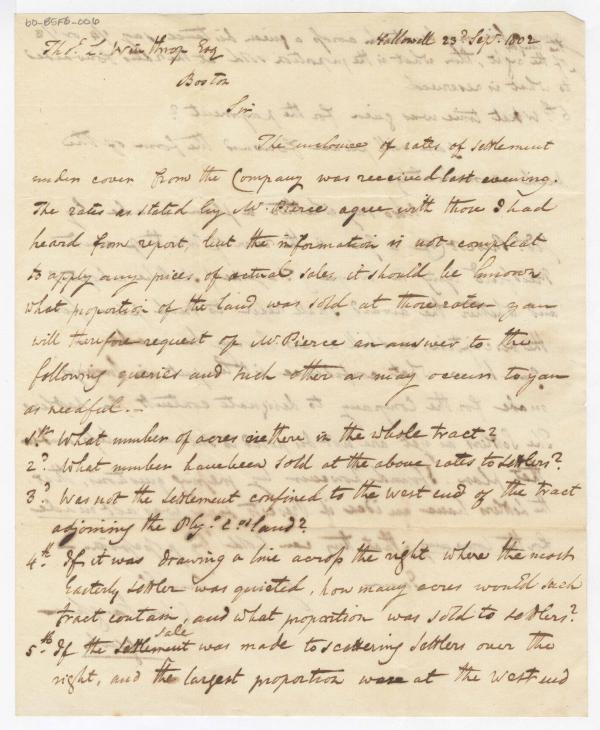 60-BSFB-006
Hallowell 23d Sept. 1802
Thos. L. Winthrop Esq
Boston
Sir
The enclosure of rates of settlement
under cover from the Company was received last evening.
The rates as stated by Mr. Pierce agree with those I had
heard from report, but the information is not compleat
to apply any prices of actual sales it should be known
what proportion of the land was sold at those rates - you
will therefore request of Mr. Pierce an answer to the
following queries and such other as may occur to you
as needful. -
1st. What number of acres is there in the whole tract?
2d. What number have been sold at the above rates to settlers?
3d. Was not the settlement confined to the west end of the tract
adjoining the land?
4th. If it was drawing a line across the right where the most
Easterly settler was quieted, how many acres would such
tract contain, and what proportion was sold to settlers?
sale
5th. If the settlement was made to scattering settlers over the
right, and the largest proportion were at the west end